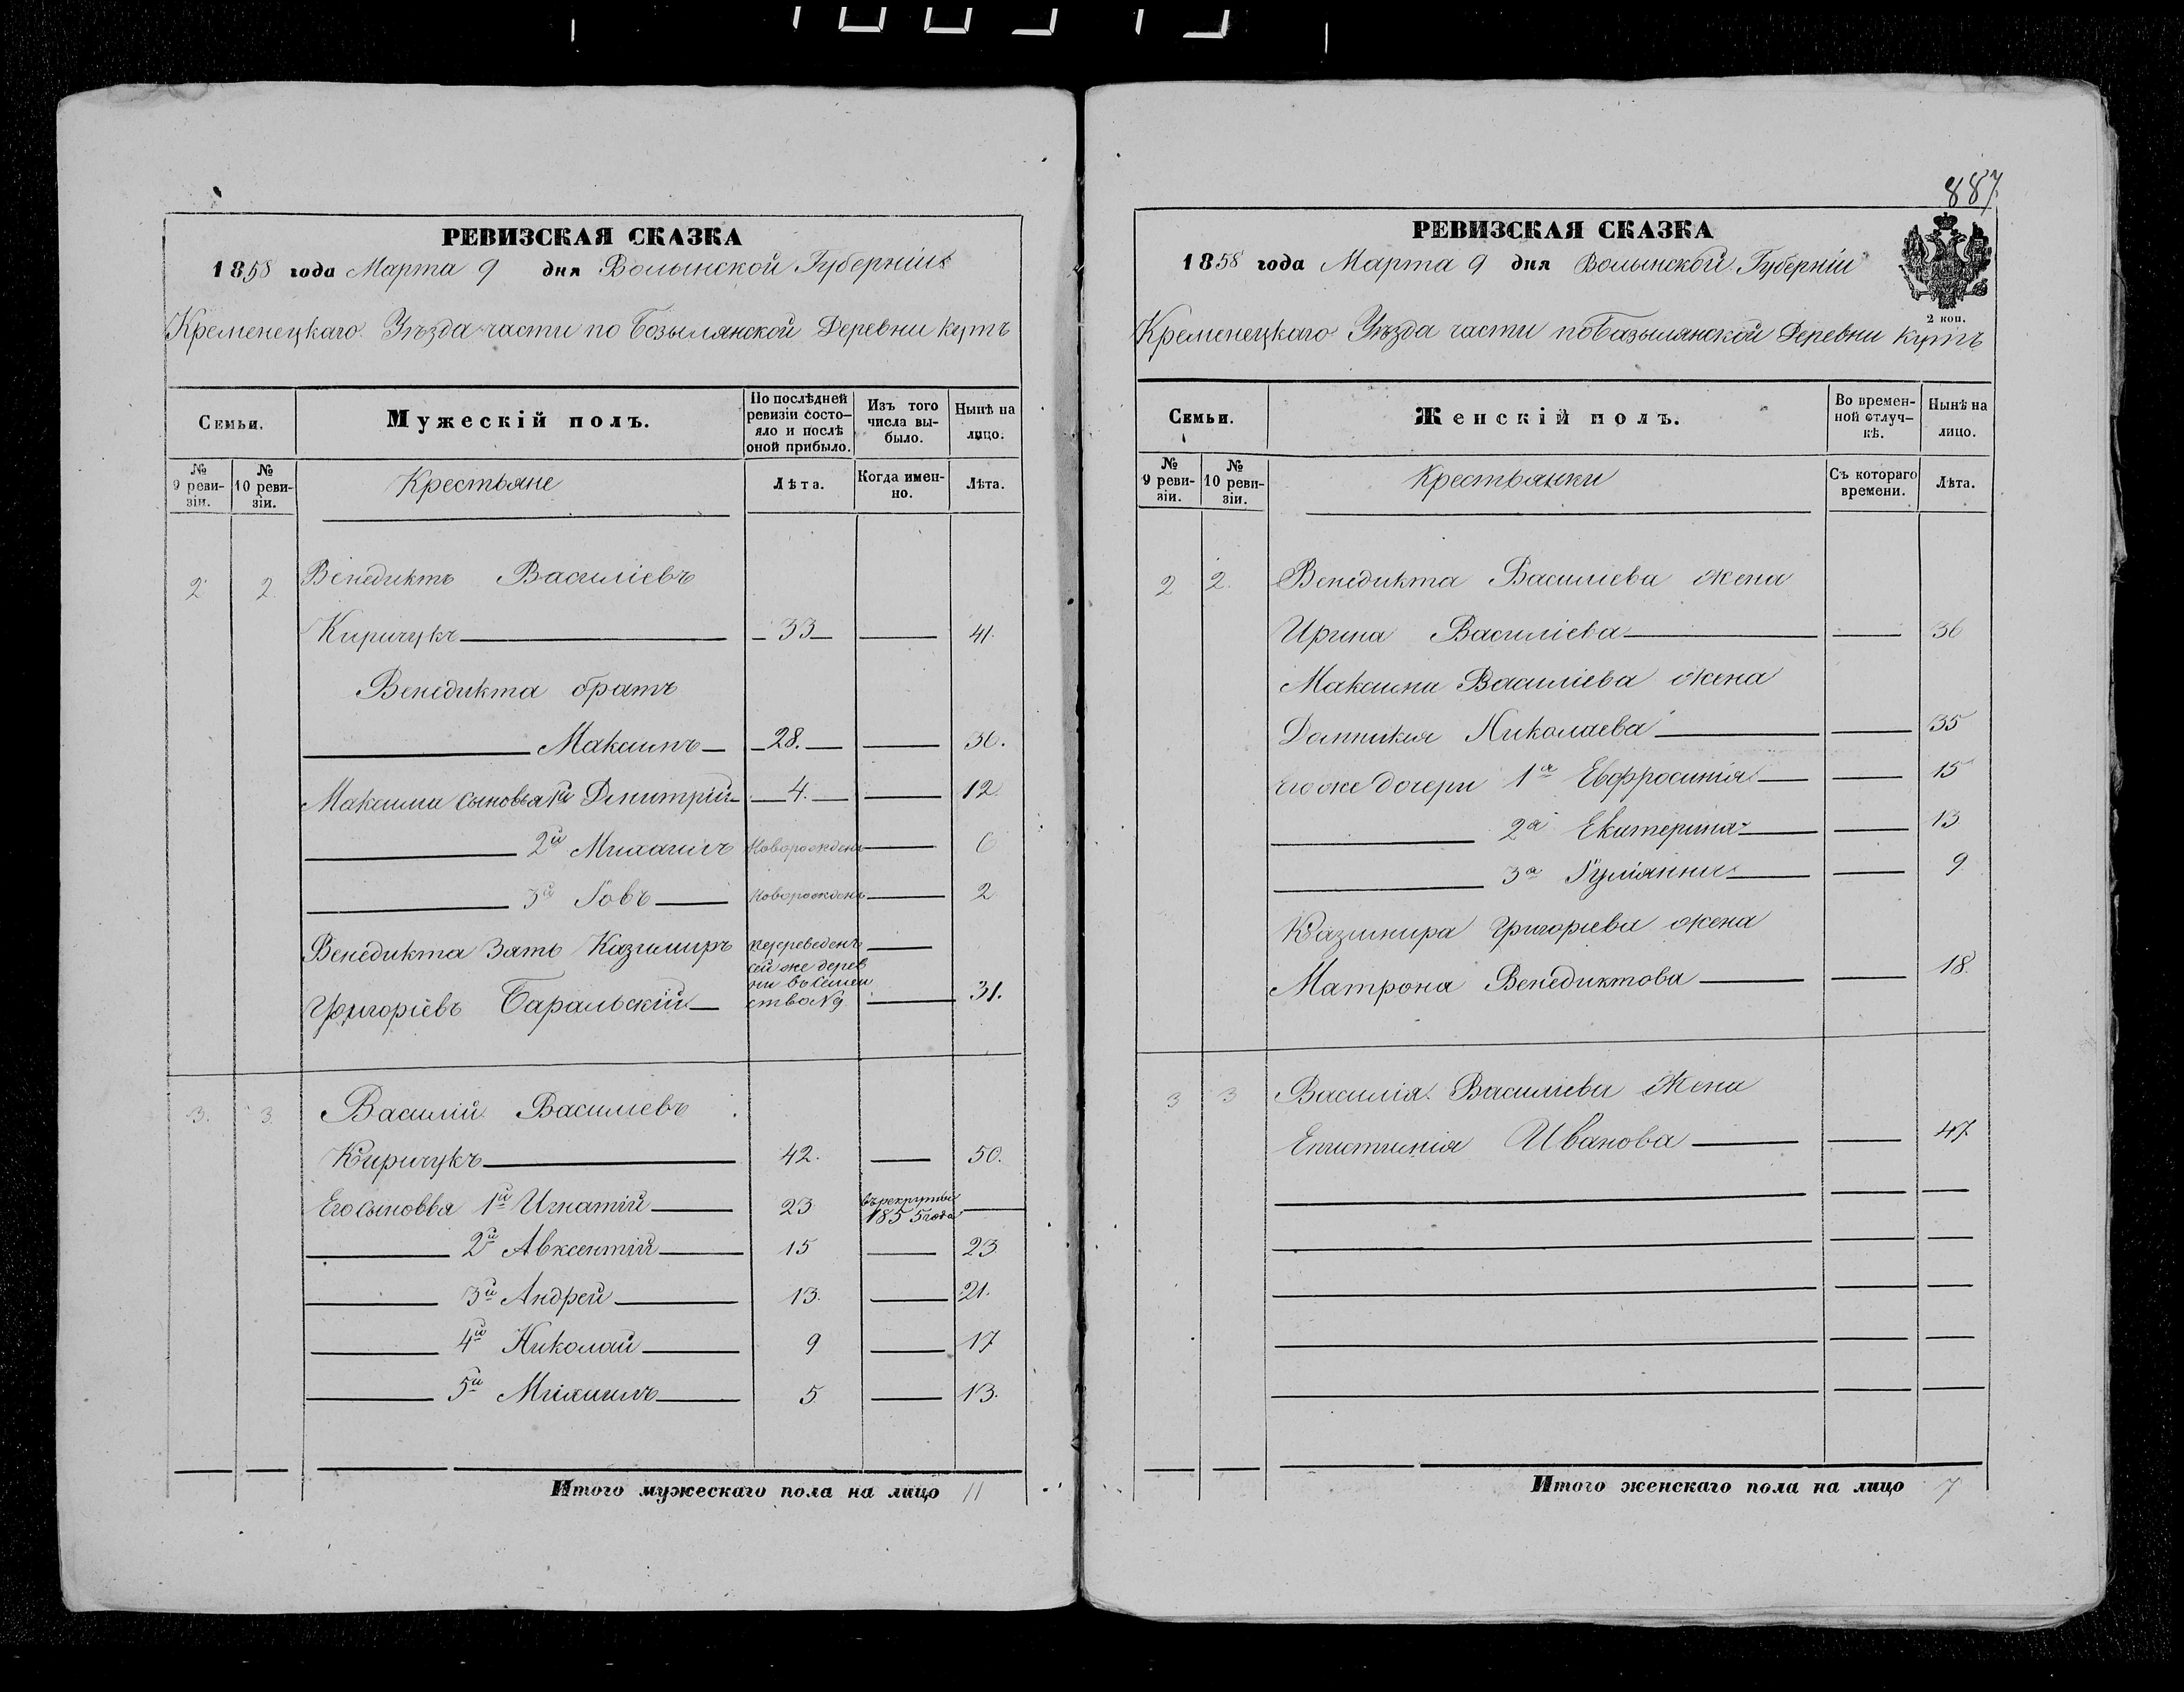 РЕВИЗСКАЯ СКАЗКА
1858 года Марта 9 дня Волынской Губерніи
Кременецкаго Уѣзда части по Бозылянской Деревни Кутъ
Семьи.
Мужескій полъ.
По послѣдней ревизіи состояло и послѣ оной прибыло.
Изъ того числа выбыло.
Нынѣ на лицо.
№ 9 ревизіи.
№ 10 ревизіи.
Крестьяне
Лѣта.
Когда именно.
Лѣта.
2 2 Венедиктъ Василіевъ
Киричукъ 33 41.
Венедикта братъ
Максимъ 28. 36.
Максима сыновья 1й Дмитрій 4. 12
2й Михаилъ Новорожденъ 6
3й Іовъ Новорожденъ 2
Венедикта Зять Казимиръ переведенъ
сей же дерев
ни въ Семей
Григоріевъ Баральскій ство N 9. 31.
3. 3. Василій Василіевъ
Киричукъ 42. 50.
Его сыновья 1й Игнатій 23 въ рекруты
1855 года
2й Авксентій 15 23
3й Андрей 13. 21.
4й Николай 9 17
5й Михаилъ 5 13.
Итого мужескаго пола на лицо 11
887
РЕВИЗСКАЯ СКАЗКА
1858 года Марта 9 дня Волынской Губерніи
2 коп.
Кременецкаго Уѣзда части по Базылянской Деревни Кутъ
Семьи.
Женскій полъ.
Во временной отлучкѣ.
Нынѣ на лицо.
№ 9 ревизіи.
№ 10 ревизіи.
Крестьянки
Съ котораго времени.
Лѣта.
2 2. Венедикта Василіева жена
Ирина Василіева 36
Максима Василіева жена
Домникія Николаева 35
его же дочери 1я Евфросинія 15
2я Екатерина 13
3я Іуліанна 9
Казимира Григоріева жена
Матрона Венедиктова 18.
3 3 Василія Василіева Жена
Епистинія Иванова 47
Итого женскаго пола на лицо 7